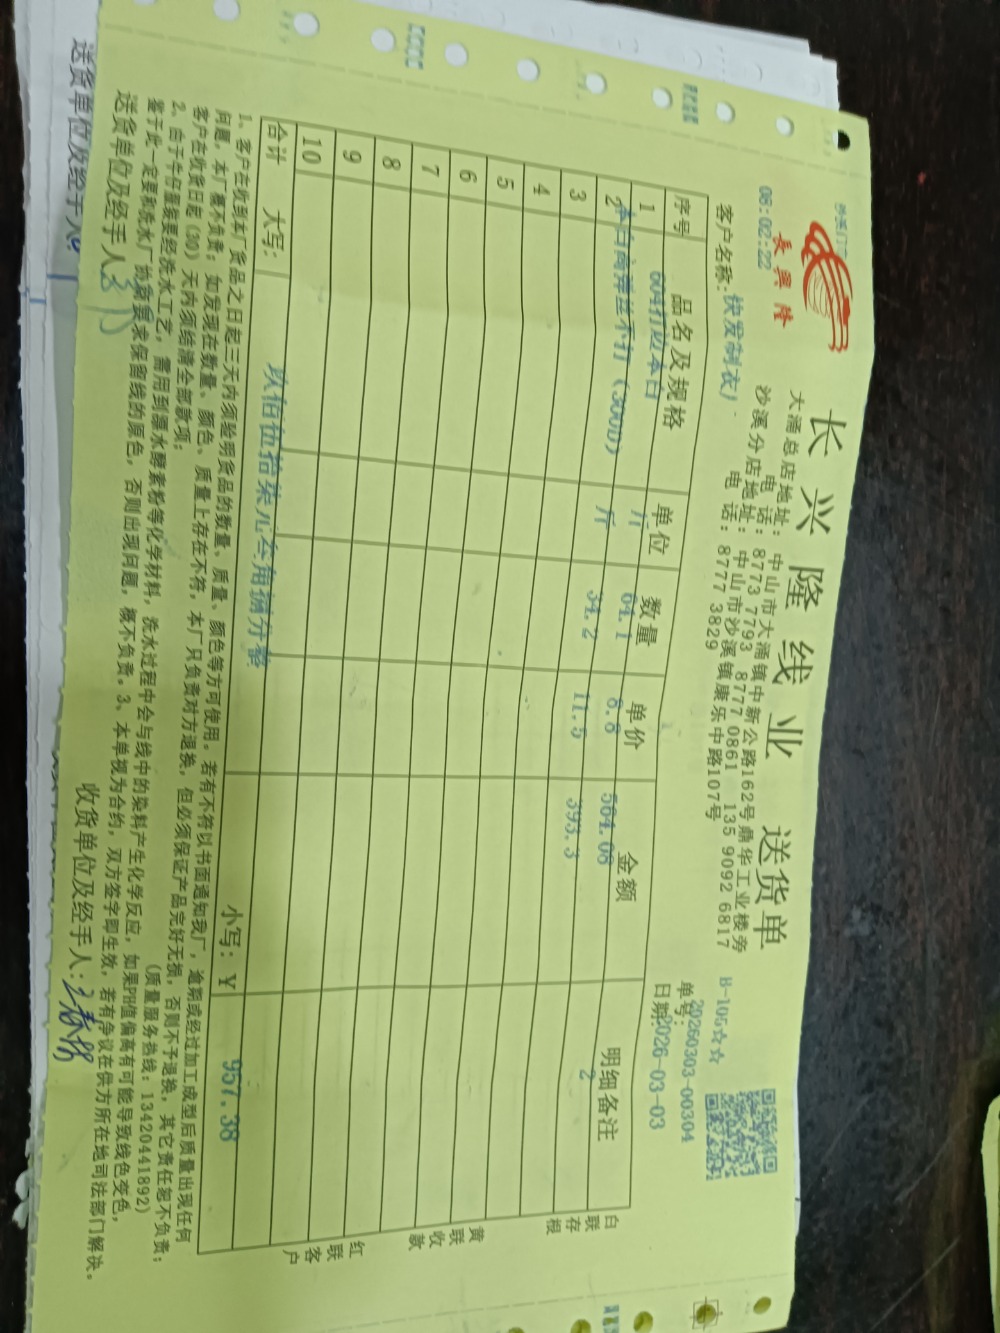 長興隆
08:02:22
长兴隆线业 送货单
大涌总店地址: 中山市大涌镇中新公路162号鼎华工业楼旁
电 话: 8773 7793 8777 0861 135 9092 6817
沙溪分店地址: 中山市沙溪镇康乐中路107号
电 话: 8777 3829
H-105☆☆
客户名称: 快发制衣厂
单号: 20260303-00304
日期: 2026-03-03
序号 品名及规格 单位 数量 单价 金额 明细备注
1 604打边本白 斤 64.1 8.8 564.08 2
2 本白高弹丝不打(300D) 斤 34.2 11.5 393.3
3
4
5
6
7
8
9
10
合计 大写: 玖佰伍拾柒元叁角捌分整 小写: ¥ 957.38
白联存根
黄联收款
红联客户
1、客户在收到本厂货品之日起三天内须验明货品的数量、质量、颜色等方可使用。若有不符以书面通知我厂,逾期或经过加工成型后质量出现任何
问题,本厂概不负责;如发现在数量、颜色、质量上存在不符,本厂只负责对方退换,但必须保证产品完好无损,否则不予退换,其它责任恕不负责;
客户在收货日起(30)天内须结清全部款项; (质量服务热线:13420441892)
2、由于牛仔服装要经洗水工艺,需用到漂水酵素粉等化学材料,洗水过程中会与线中的染料产生化学反应,如果PH值偏高有可能导致线色变色,
鉴于此一定要和洗水厂协商要求保留线的原色,否则出现问题,概不负责。3、本单视为合约,双方签字即生效,若有争议在供方所在地司法部门解决。
送货单位及经手人: 收货单位及经手人:
送货单位及经手人: